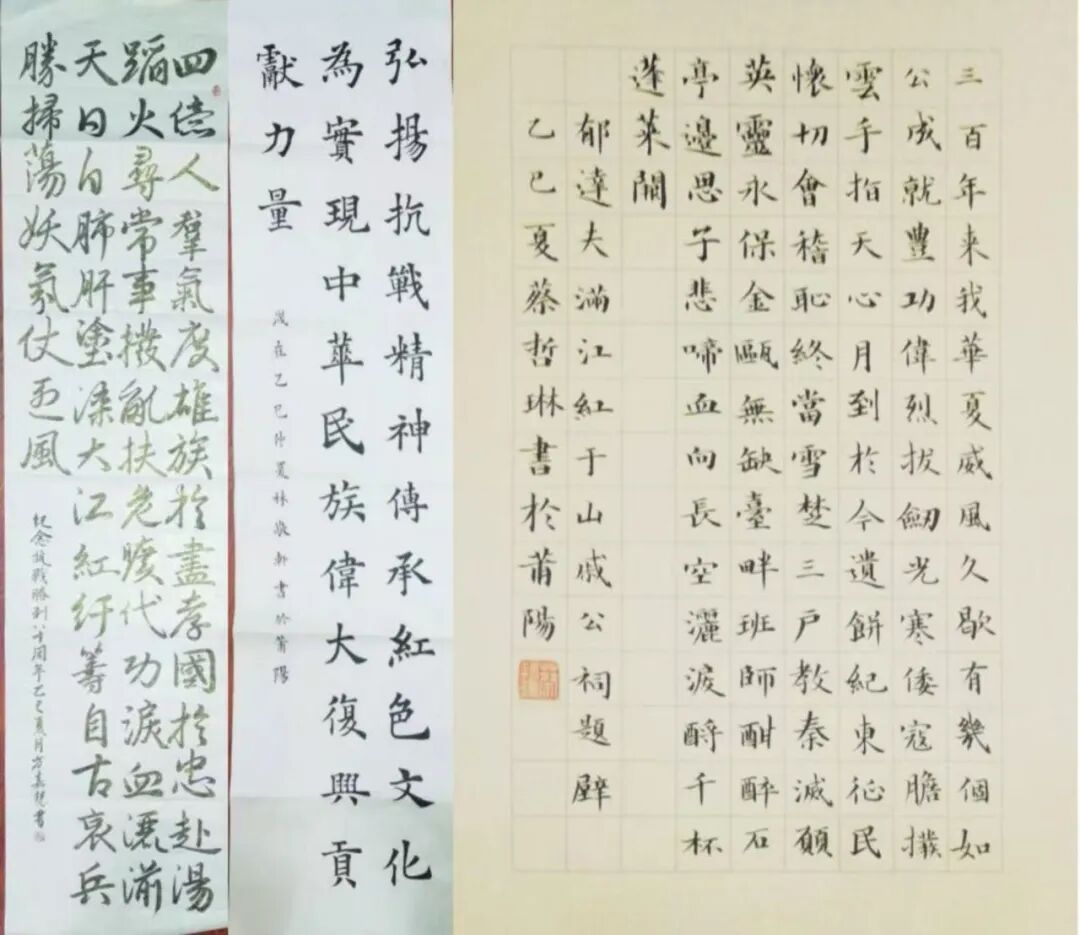 四億人羣氣度雄族於盡孝國於忠赴湯
蹈火尋常事撥亂扶危曠代功淚血灑湔
天日白肺肝塗染大江紅紆籌自古哀兵
勝掃蕩妖氛仗正風
紀念抗戰勝利八十周年乙巳夏月方嘉書
弘揚抗戰精神傳承紅色文化
為實現中華民族偉大復興貢
獻力量
歲在乙巳仲夏林敬軒書於莆陽
三百年来我華夏威風久歇有幾個如
公成就豐功偉烈拔劒光寒倭寇膽撥
雲手指天心月到於今遺餅紀東征民
懷切會稽恥終當雪楚三戶教秦滅願
英靈永保金甌無缺臺畔班師酣醉石
亭邊思子悲啼血向長空灑淚酹千杯
蓬萊闕
郁達夫滿江紅于山戚公祠題壁
乙巳夏蔡哲琳書於莆陽